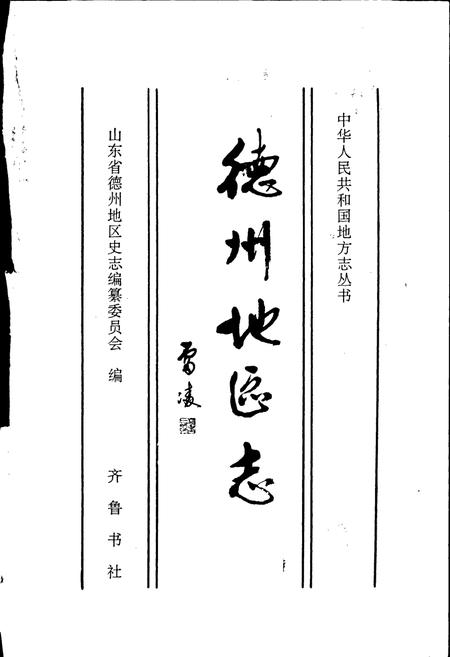 中华人民共和国地方志丛书
德州地区志
雷凌
山东省德州地区史志编纂委员会 编
齐鲁书社